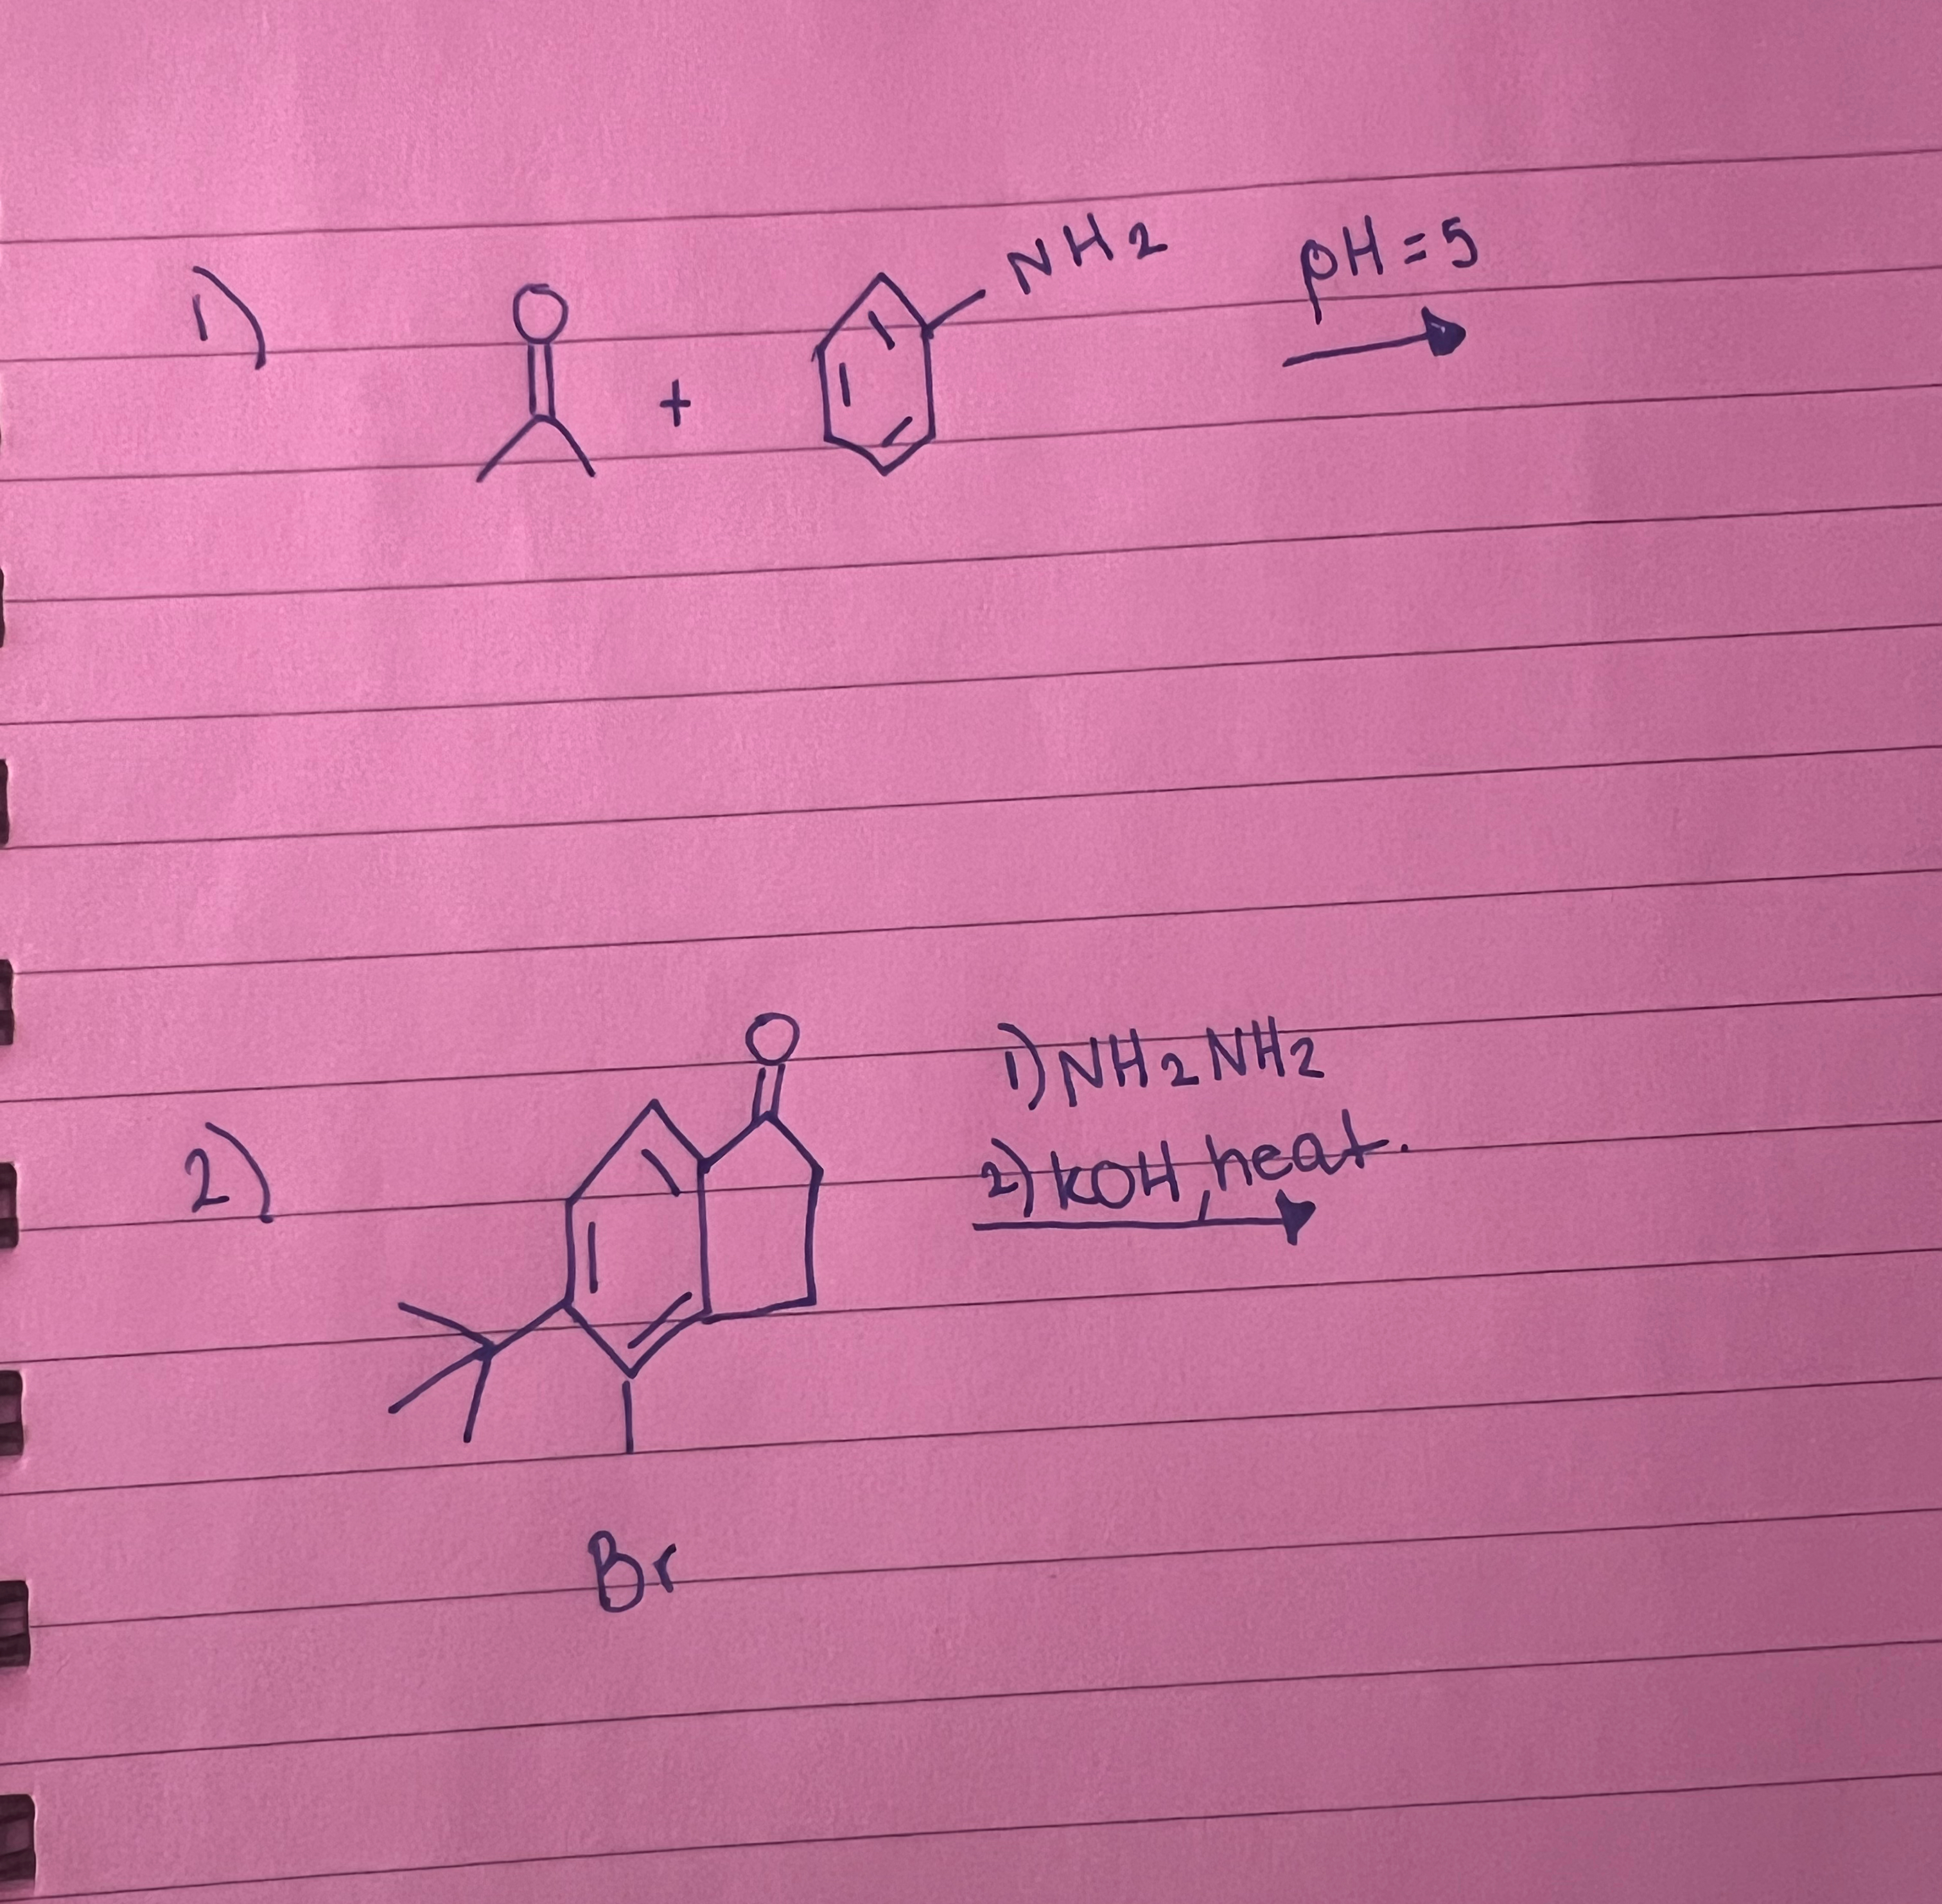 1)
O
+
NH2
pH=5
2)
O
1) NH2NH2
2) KOH, heat.
Br